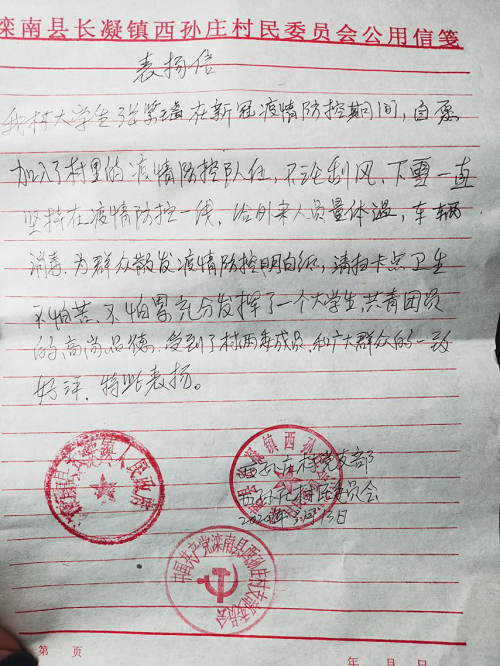 滦南县长凝镇西孙庄村民委员会公用信笺
表扬信
我村大学生张紫璠在新冠疫情防控期间,自愿
加入了村里的疫情防控队伍,不论刮风、下雪一直
坚持在疫情防控一线,给外来人员量体温,车辆
消毒、为群众散发疫情防控明白纸,清扫卡点卫生
不怕苦、不怕累充分发挥了一个大学生,共青团员
的高尚品德、受到了村两委成员和广大群众的一致
好评,特此表扬。
滦南县长凝镇人民政府
长凝镇西孙
西孙庄村党支部
西孙庄村民委员会
2020年3月15日
中国共产党滦南县西孙庄村支部委员会
第 页
年 月 日